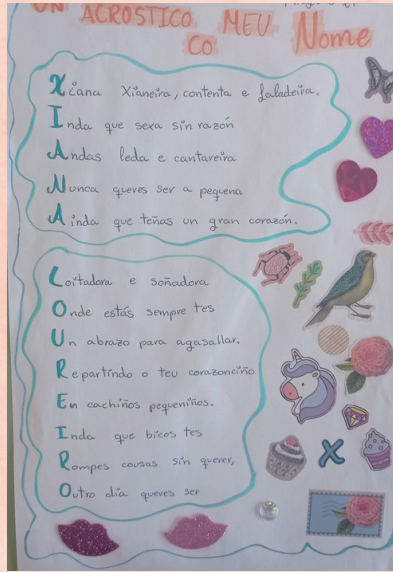 UN ACROSTICO
CO MEU Nome
Xiana Xianeira, contenta e faladeira.
Inda que sexa sin razón
Andas leda e cantareira
Nunca queres ser a pequena
Ainda que teñas un gran corazón.
Loitadora e soñadora
Onde estás sempre tes
Un abrazo para agasallar.
Repartindo o teu corazonciño
En cachiños pequeniños.
Inda que bicos tes
Rompes cousas sin querer,
Outro día queres ser
X